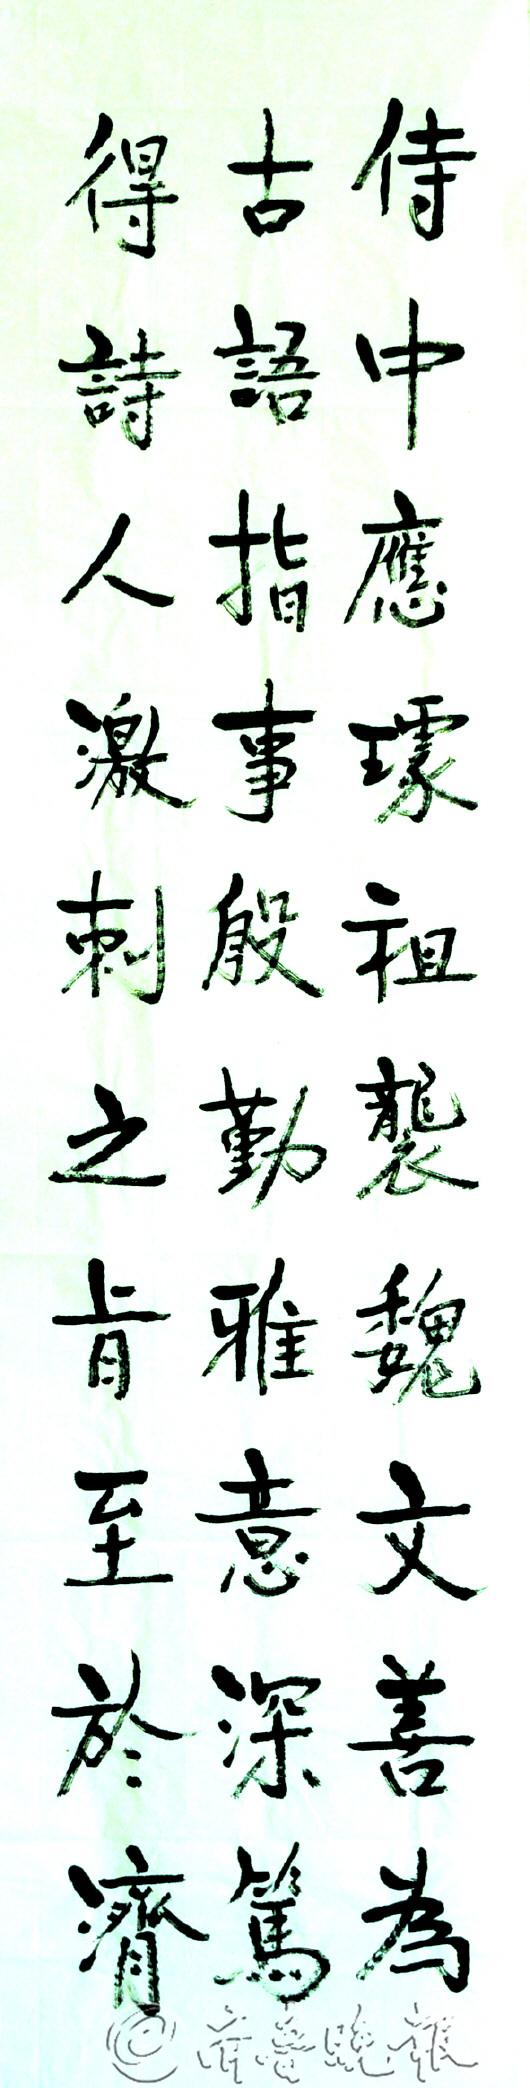 侍中應璩祖襲魏文善為
古語指事殷勤雅意深篤
得詩人激刺之旨至於濟
齊魯晚報